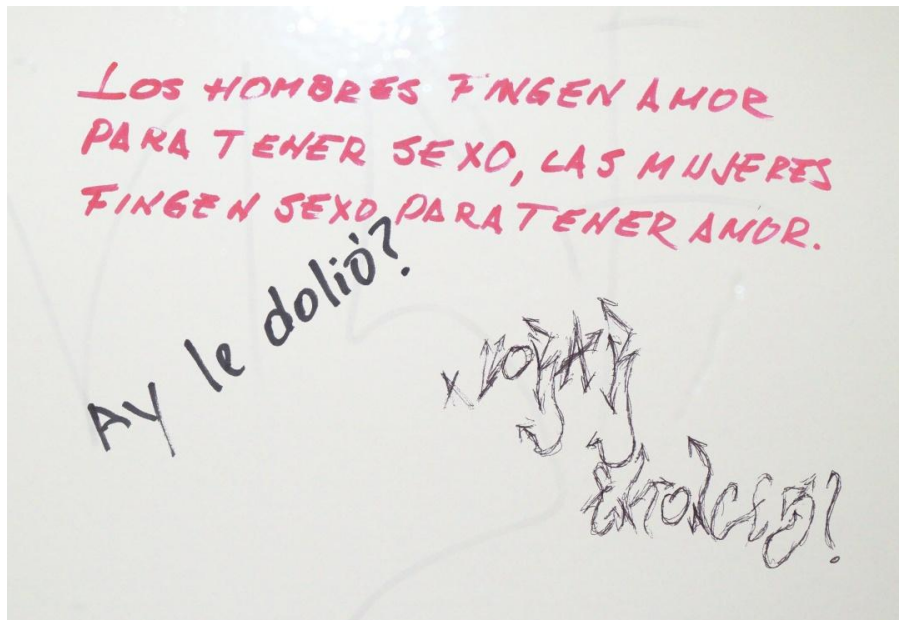 LOS HOMBRES FINGEN AMOR
PARA TENER SEXO, LAS MUJERES
FINGEN SEXO PARA TENER AMOR.
Ay le dolió?
x
Entonces?